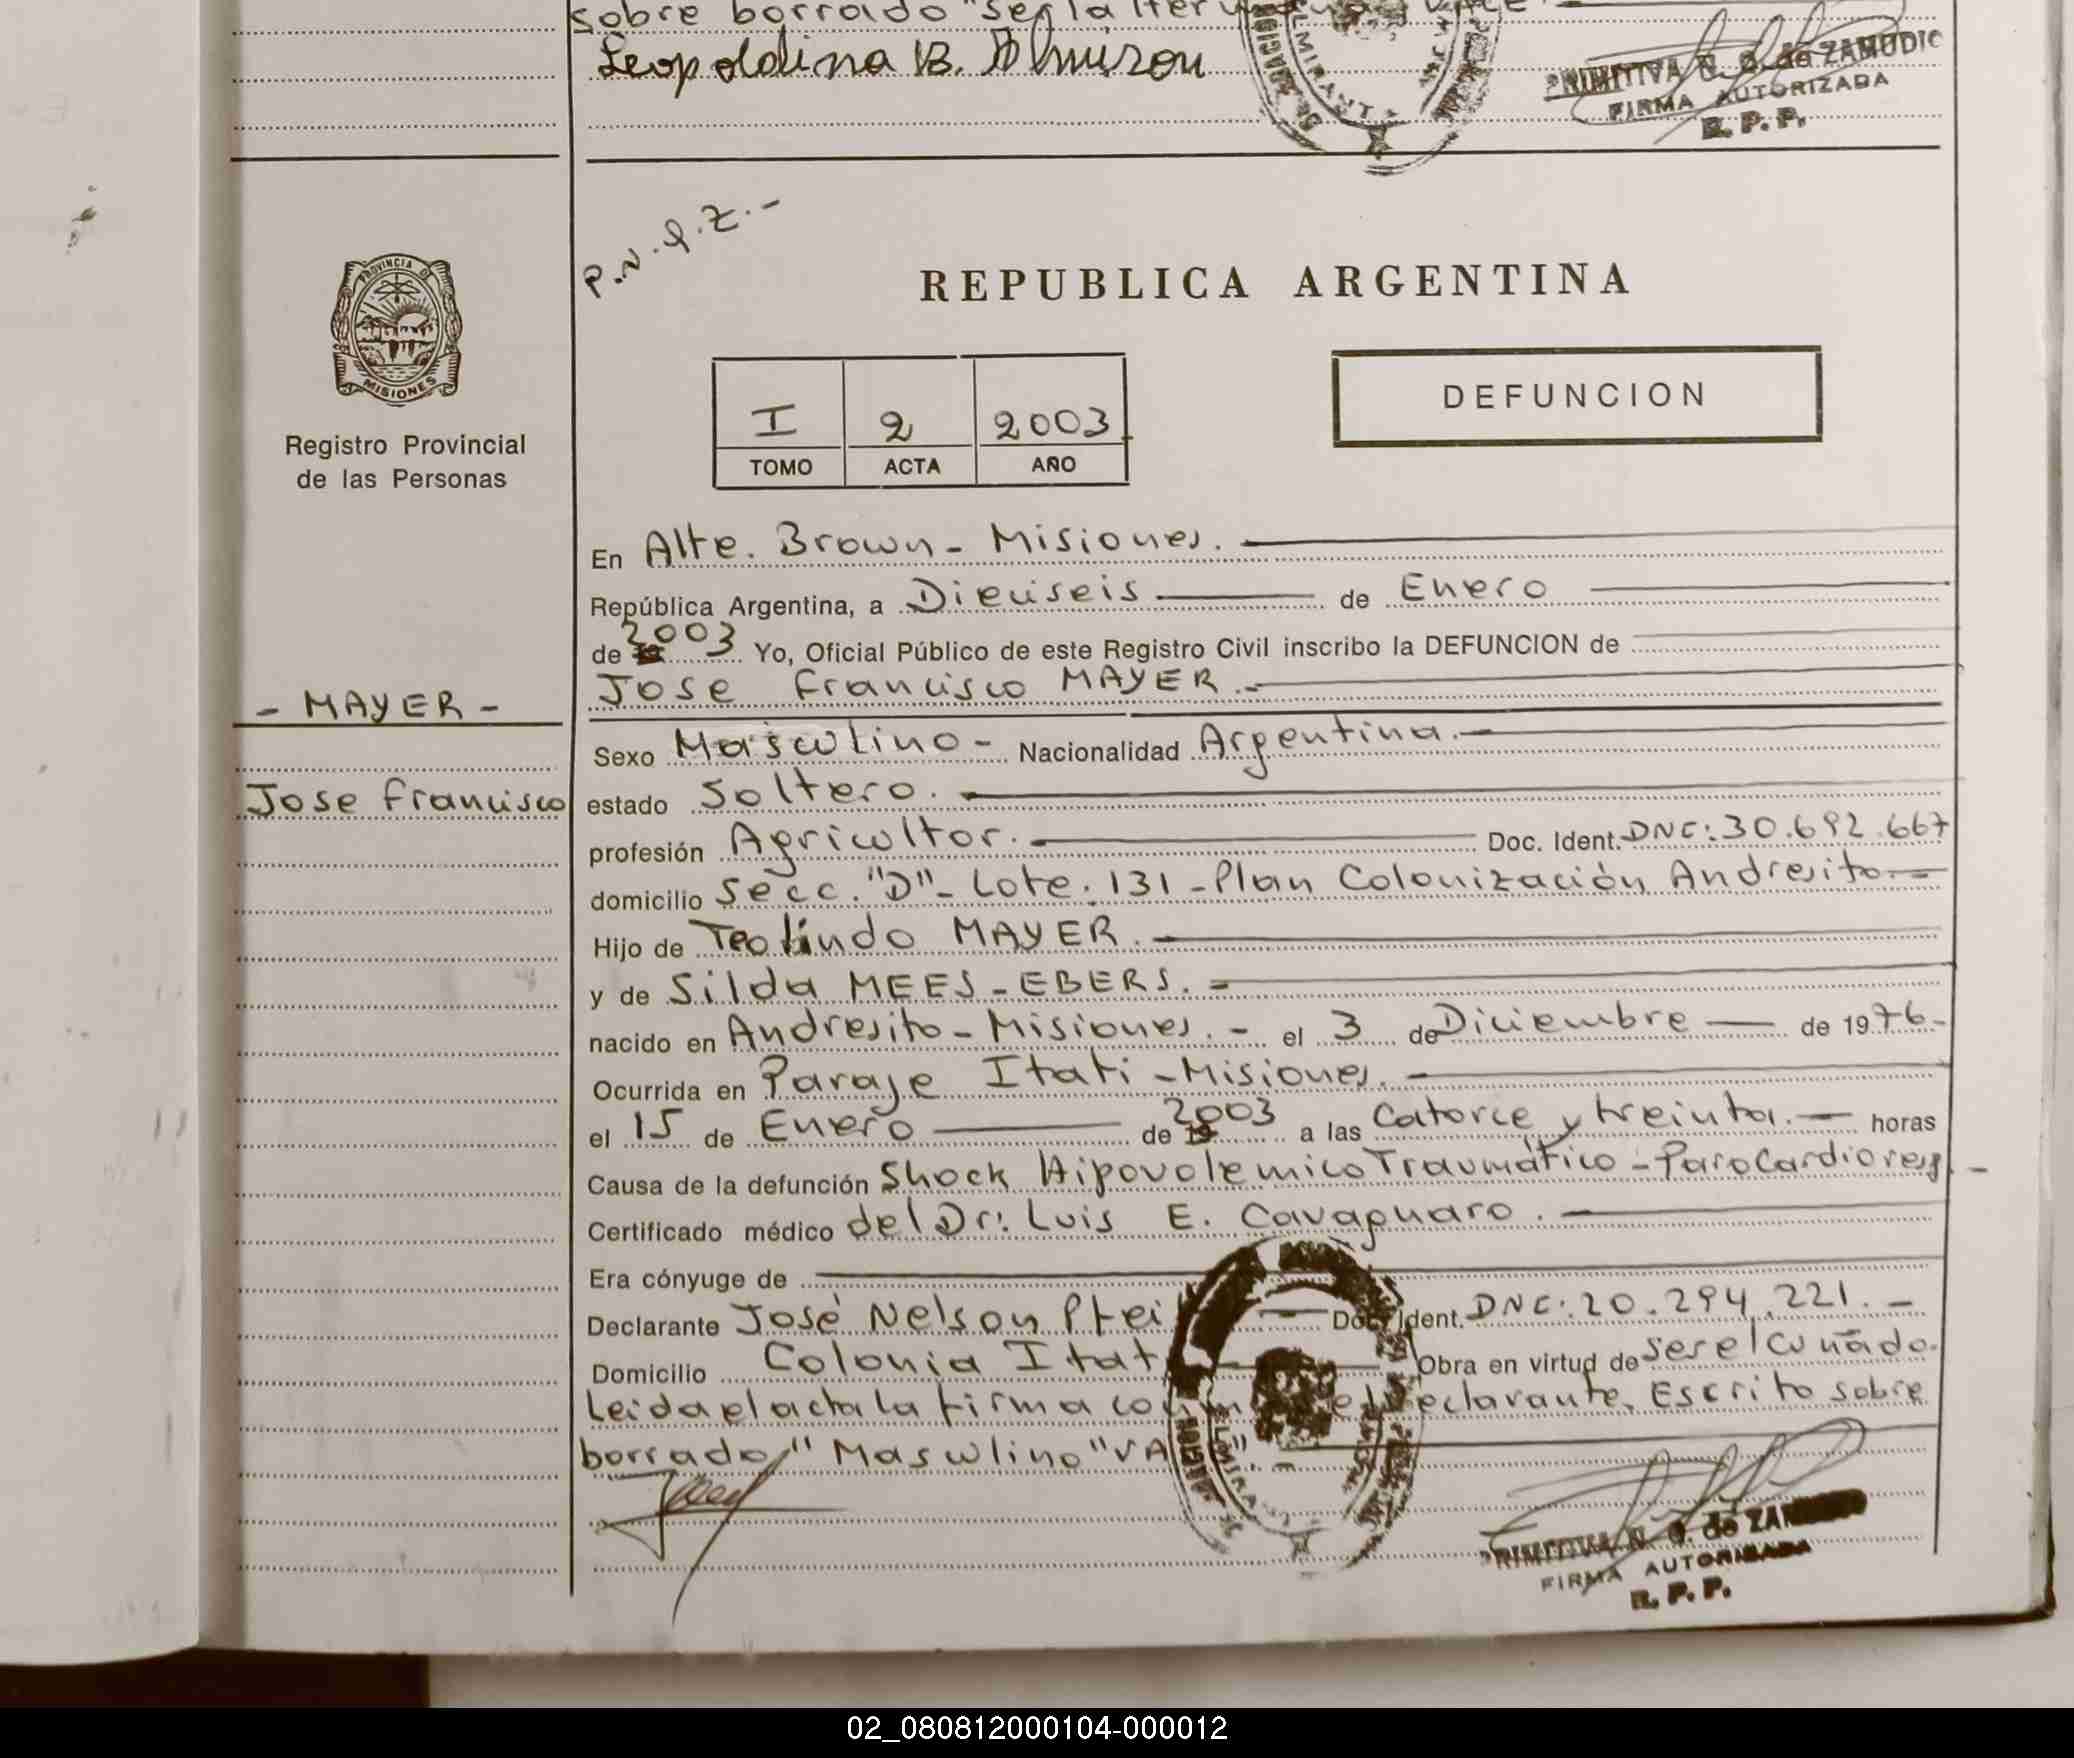 sobre borrado "ser la
Leopoldina B. Almiron
PRIMITIVA G. de ZAMUDIO
FIRMA AUTORIZADA
R. P. P.
P.N.I.Z.-
PROVINCIA DE
MISIONES
Registro Provincial
de las Personas
REPUBLICA ARGENTINA
I 2 2003
TOMO ACTA AÑO
DEFUNCION
En Alte. Brown - Misiones.
República Argentina, a Dieciseis de Enero
de 19 2003 Yo, Oficial Público de este Registro Civil inscribo la DEFUNCION de
Jose Francisco MAYER.-
- MAYER -
Jose Francisco
Sexo Masculino - Nacionalidad Argentina.-
estado Soltero.
profesión Agricultor. Doc. Ident. DNI: 30.692.667
domicilio Secc. "D" - Lote. 131 - Plan Colonización Andresito -
Hijo de Teolindo MAYER.
y de Silda MEES - EBERS.-
nacido en Andresito - Misiones. - el 3 de Diciembre de 1976-
Ocurrida en Paraje Itati - Misiones.
el 15 de Enero de 19 2003 a las Catorce y treinta.- horas
Causa de la defunción Shock Hipovolemico Traumático - Paro Cardioresp. -
Certificado médico del Dr: Luis E. Cavagnaro.
Era cónyuge de
Declarante José Nelson Doc. Ident. DNI: 20.294.221.-
Domicilio Colonia Itati Obra en virtud de ser el cuñado.
Leida el acta la firma el declarante. Escrito sobre
borrado "Masculino"
PRIMITIVA G. de ZAMUDIO
FIRMA AUTORIZADA
R. P. P.
02_080812000104-000012